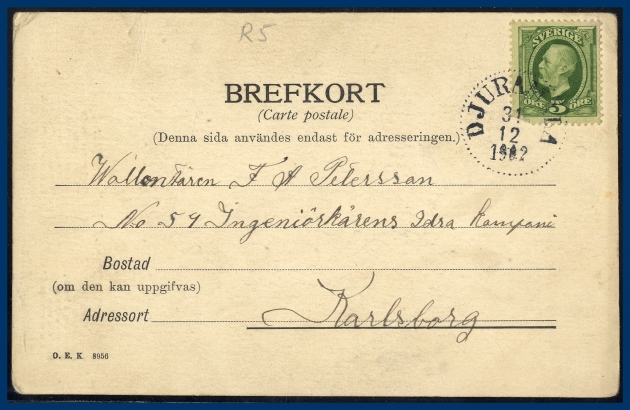 R5
SVERIGE
ÖRE 5 ÖRE
BREFKORT
(Carte postale)
DJURA
31
12
1902
(Denna sida användes endast för adresseringen.)
Wollontären F A Peterssan
No 59 Ingeniörkårens Idra Kompani
Bostad
(om den kan uppgifvas)
Adressort Karlsborg
D. E. K. 8956